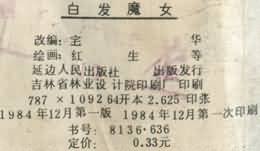 白发魔女
改编：宅 华
绘画：红 生 等
延边人民出版社 出版发行
吉林省林业设计院印刷厂印刷
787×1092 64开本 2.625印张
1984年12月第一版 1984年12月第一次印刷
书号：8136·636
定价：0.33元